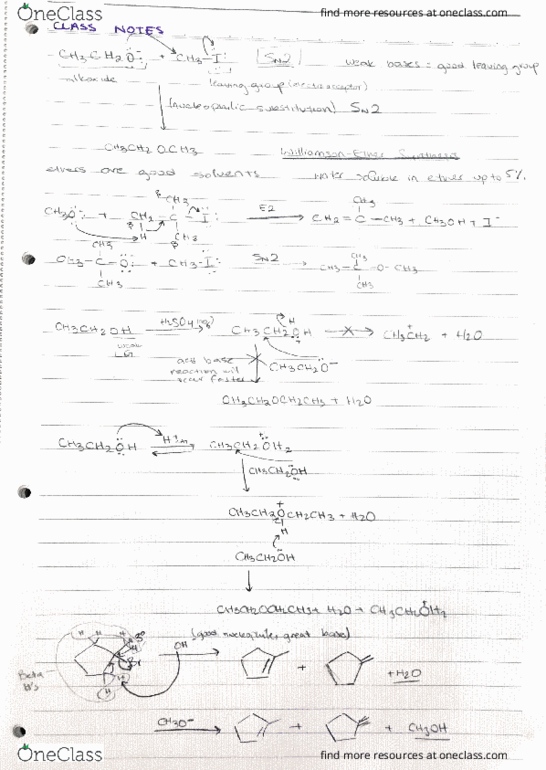 OneClass find more resources at oneclass.com
CLASS NOTES
CH3CH2Ö: + CH3-I: SN2 weak bases: good leaving group
alkoxide leaving group
(nucleophilic substitution) SN2
CH3CH2OCH3 Williamson-Ether Synthesis
ethers are good solvents water soluble in ether up to 5%.
CH3
CH3Ö: + CH2-C-I: E2 CH2=C-CH3 + CH3OH + I-
H CH3
CH3
CH3-C-Ö: + CH3-I: SN2 CH3-C-O-CH3
CH3 CH3
CH3CH2OH H2SO4 CH3CH2OH CH3CH2 + H2O
acid base
reaction will CH3CH2O-
occur faster
CH3CH2OCH2CH3 + H2O
CH3CH2ÖH CH3CH2OH2
CH3CH2ÖH
+
CH3CH2OCH2CH3 + H2O
H
CH3CH2ÖH
CH3CH2OCH2CH3 + H2O + CH3CH2OH2
(good nucleophile, great base)
Beta H's Br OH + +H2O
CH3O- + + CH3OH
OneClass find more resources at oneclass.com